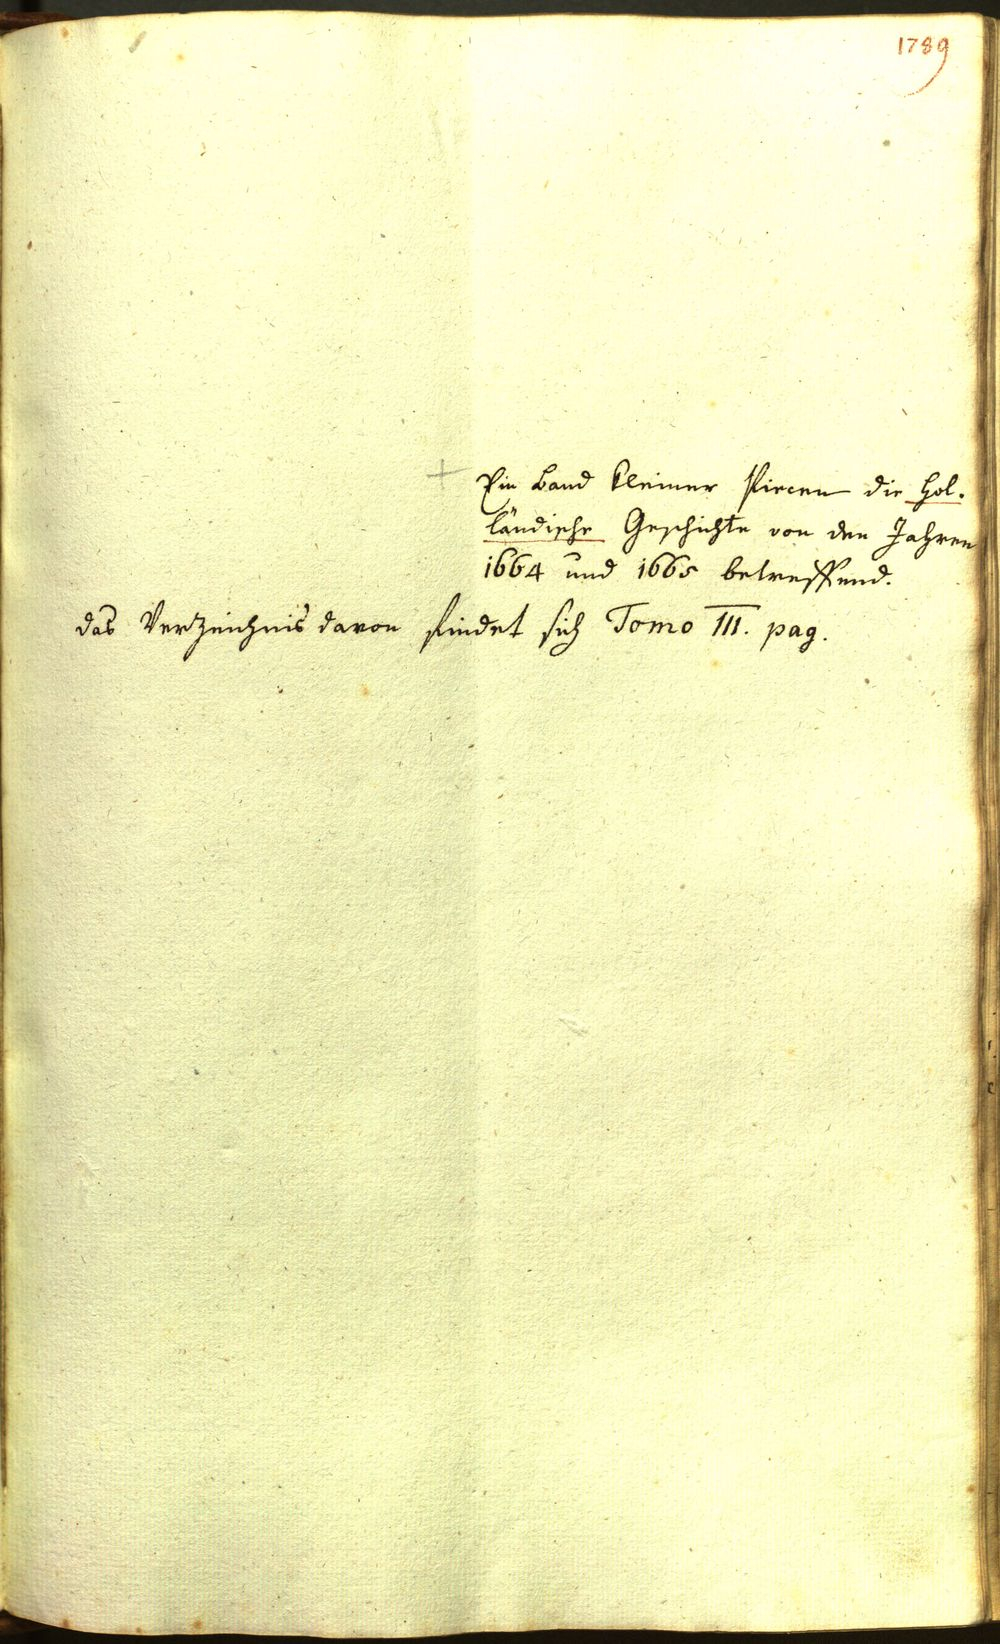 1789
+ Ein Band kleiner Piecen die Hol-
ländische Geschichte von den Jahren
1664 und 1665 betreffend.
das Verzeichnis davon findet sich Tomo III. pag.